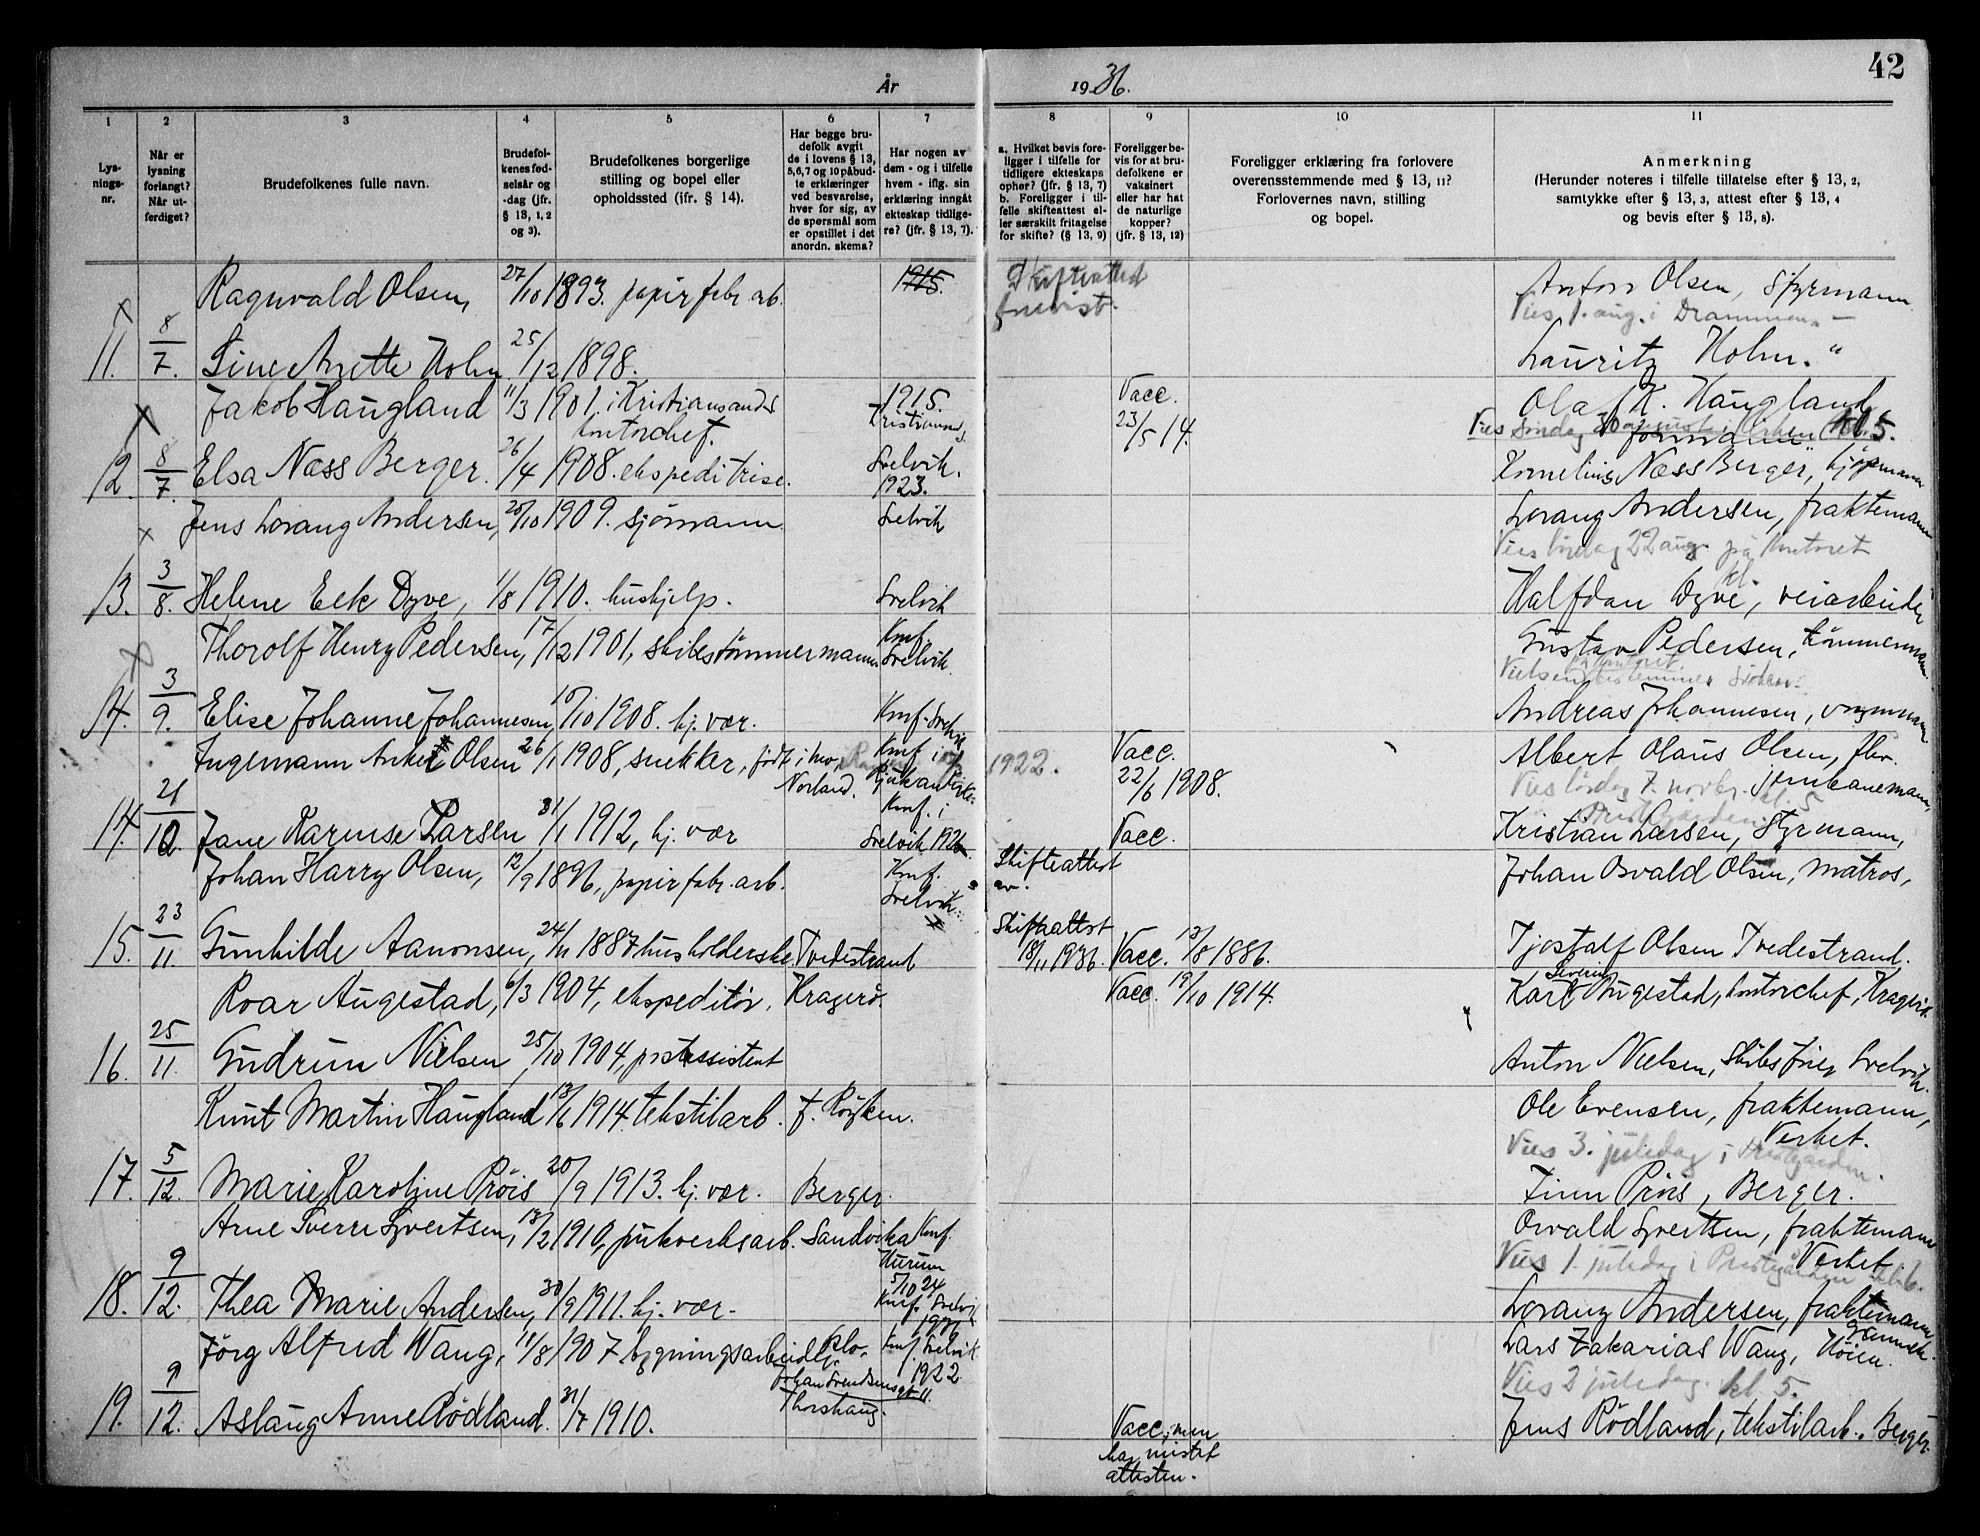 42
År 1936.
1 2 3 4 5 6 7 8 9 10 11
Lys-
nings-
nr.
Når er
lysning
forlangt?
Når ut-
ferdiget?
Brudefolkenes fulle navn.
Brudefol-
kenes fød-
selsår og
-dag (jfr.
§ 13, 1, 2
og 3).
Brudefolkenes borgerlige
stilling og bopel eller
opholdssted (jfr. § 14).
Har begge bru-
defolk avgit
de i lovens § 13,
5,6,7 og 10 påbud-
te erklæringer
ved besvarelse,
hver for sig, av
de spørsmål som
er opstillet i det
anordn. skema?
Har nogen av
dem - og i tilfelle
hvem - iflg. sin
erklæring inngåt
ekteskap tidlige-
re? (jfr. § 13, 7).
a. Hvilket bevis fore-
ligger i tilfelle for
tidligere ekteskaps
ophør? (jfr. § 13, 7)
b. Foreligger i til-
felle skifteattest el-
ler særskilt fritagelse
for skifte? (§ 13, 9)
Foreligger be-
vis for at bru-
defolkene er
vaksinert
eller har hat
de naturlige
kopper?
(jfr. § 13, 12)
Foreligger erklæring fra forlovere
overensstemmende med § 13, 11?
Forlovernes navn, stilling
og bopel.
Anmerkning
(Herunder noteres i tilfelle tillatelse efter § 13, 2,
samtykke efter § 13, 3, attest efter § 13, 4
og bevis efter § 13, 8).
Ragnvald Olsen, 27/10 1893. papirfabr. arb. 1915. Skifteattest Anton Olsen, Styrmann
Vies 1. aug. i Drammen
11. 8/7. Sine Anette Holm 25/12 1898. Lauritz Holm. "
Jakob Haugland 11/3 1901. i Kristiansand kontorchef. 1915. Kristiansand Vacc. 23/5 14. Olaf K. Haugland
Vies Søndag kl. 5.
12. 8/7. Elsa Næss Berger. 26/4 1908. ekspeditrise. Svelvik. 1923. Kornelius Næss Berger, kjøpmann
Jens Lorang Andersen, 20/10 1909. sjømann Svelvik Lorang Andersen, fraktemann
Vies lørdag 22 aug. på kontoret kl.
13. 3/8. Helene Eek Dyve, 1/8 1910. hushjelp. Svelvik Halfdan Dyve, veiarbeider
Thorolf Henry Pedersen, 17/12 1901, skibstømmermann Knf. Svelvik. Gustav Pedersen, tømmermann
på kontoret.
14. 3/9. Elise Johanne Johannesen, 10/10 1908. hj. vær. Knf. Svelvik Andreas Johannesen, vognmann
Ingemann Anker Olsen 26/1 1908, snekker, født i Mo, Norland. Knf. i Rjukan 1922. Vacc. 22/6 1908. Albert Olaus Olsen, fhv. jernbanemann,
Vies lørdag 7. novbr. kl. 5
14. 21/10. Jane Karense Larsen 31/1 1912, hj. vær Knf. i Svelvik 1926. Vacc. Kristian Larsen, Styrmann,
Johan Harry Olsen, 12/9 1896, papirfabr. arb. Knf. Svelvik. Skifteattest av. Johan Osvald Olsen, matros,
15. 23/11. Gunhilde Aanonsen, 24/11 1887 husholderske Tvedestrand Skifteattest 18/11 1936. Vacc. 13/8 1886. Tjostalf Olsen Tvedestrand.
Roar Augestad, 6/3 1904, ekspeditør, Kragerø. Vacc. 19/10 1914. Karl Severin Augestad, kontorchef, Kragerø.
16. 25/11. Gudrun Nielsen 25/10 1904, postassistent Anton Nielsen, Skibsfører Svelvik.
Knut Martin Haugland 13/6 1914. tekstilarb. f. Røyken. Ole Evensen, fraktemann, Verket.
Vies 3. juledag i Prestegården.
17. 5/12. Marie Karoline Prøis 20/9 1913. hj. vær. Berger. Finn Prøis, Berger.
Arne Sverre Syvertsen, 13/2 1910, pukverksarb. Sandvika Knf. Hurum 5/10 24 Osvald Syvertsen, fraktemann Verket
Vies 1. juledag i Prestegården kl. 6.
18. 9/12. Thea Marie Andersen, 30/9 1911. hj. vær. Knf. Svelvik Lorang Andersen, fraktemann
Jørg Alfred Wang, 11/8 1907 bygningsarbeider. Oslo, Johan Svendsensgt 11. Knf. Svelvik. 1922 Lars Zakarias Wang, Høien.
Vies 2 juledag. kl. 5.
19. 9/12. Aslaug Anne Rødland. 31/7 1910. Thorshaug. Vacc. men har mistet attesten. Jens Rødland, tekstilarb. Berger.